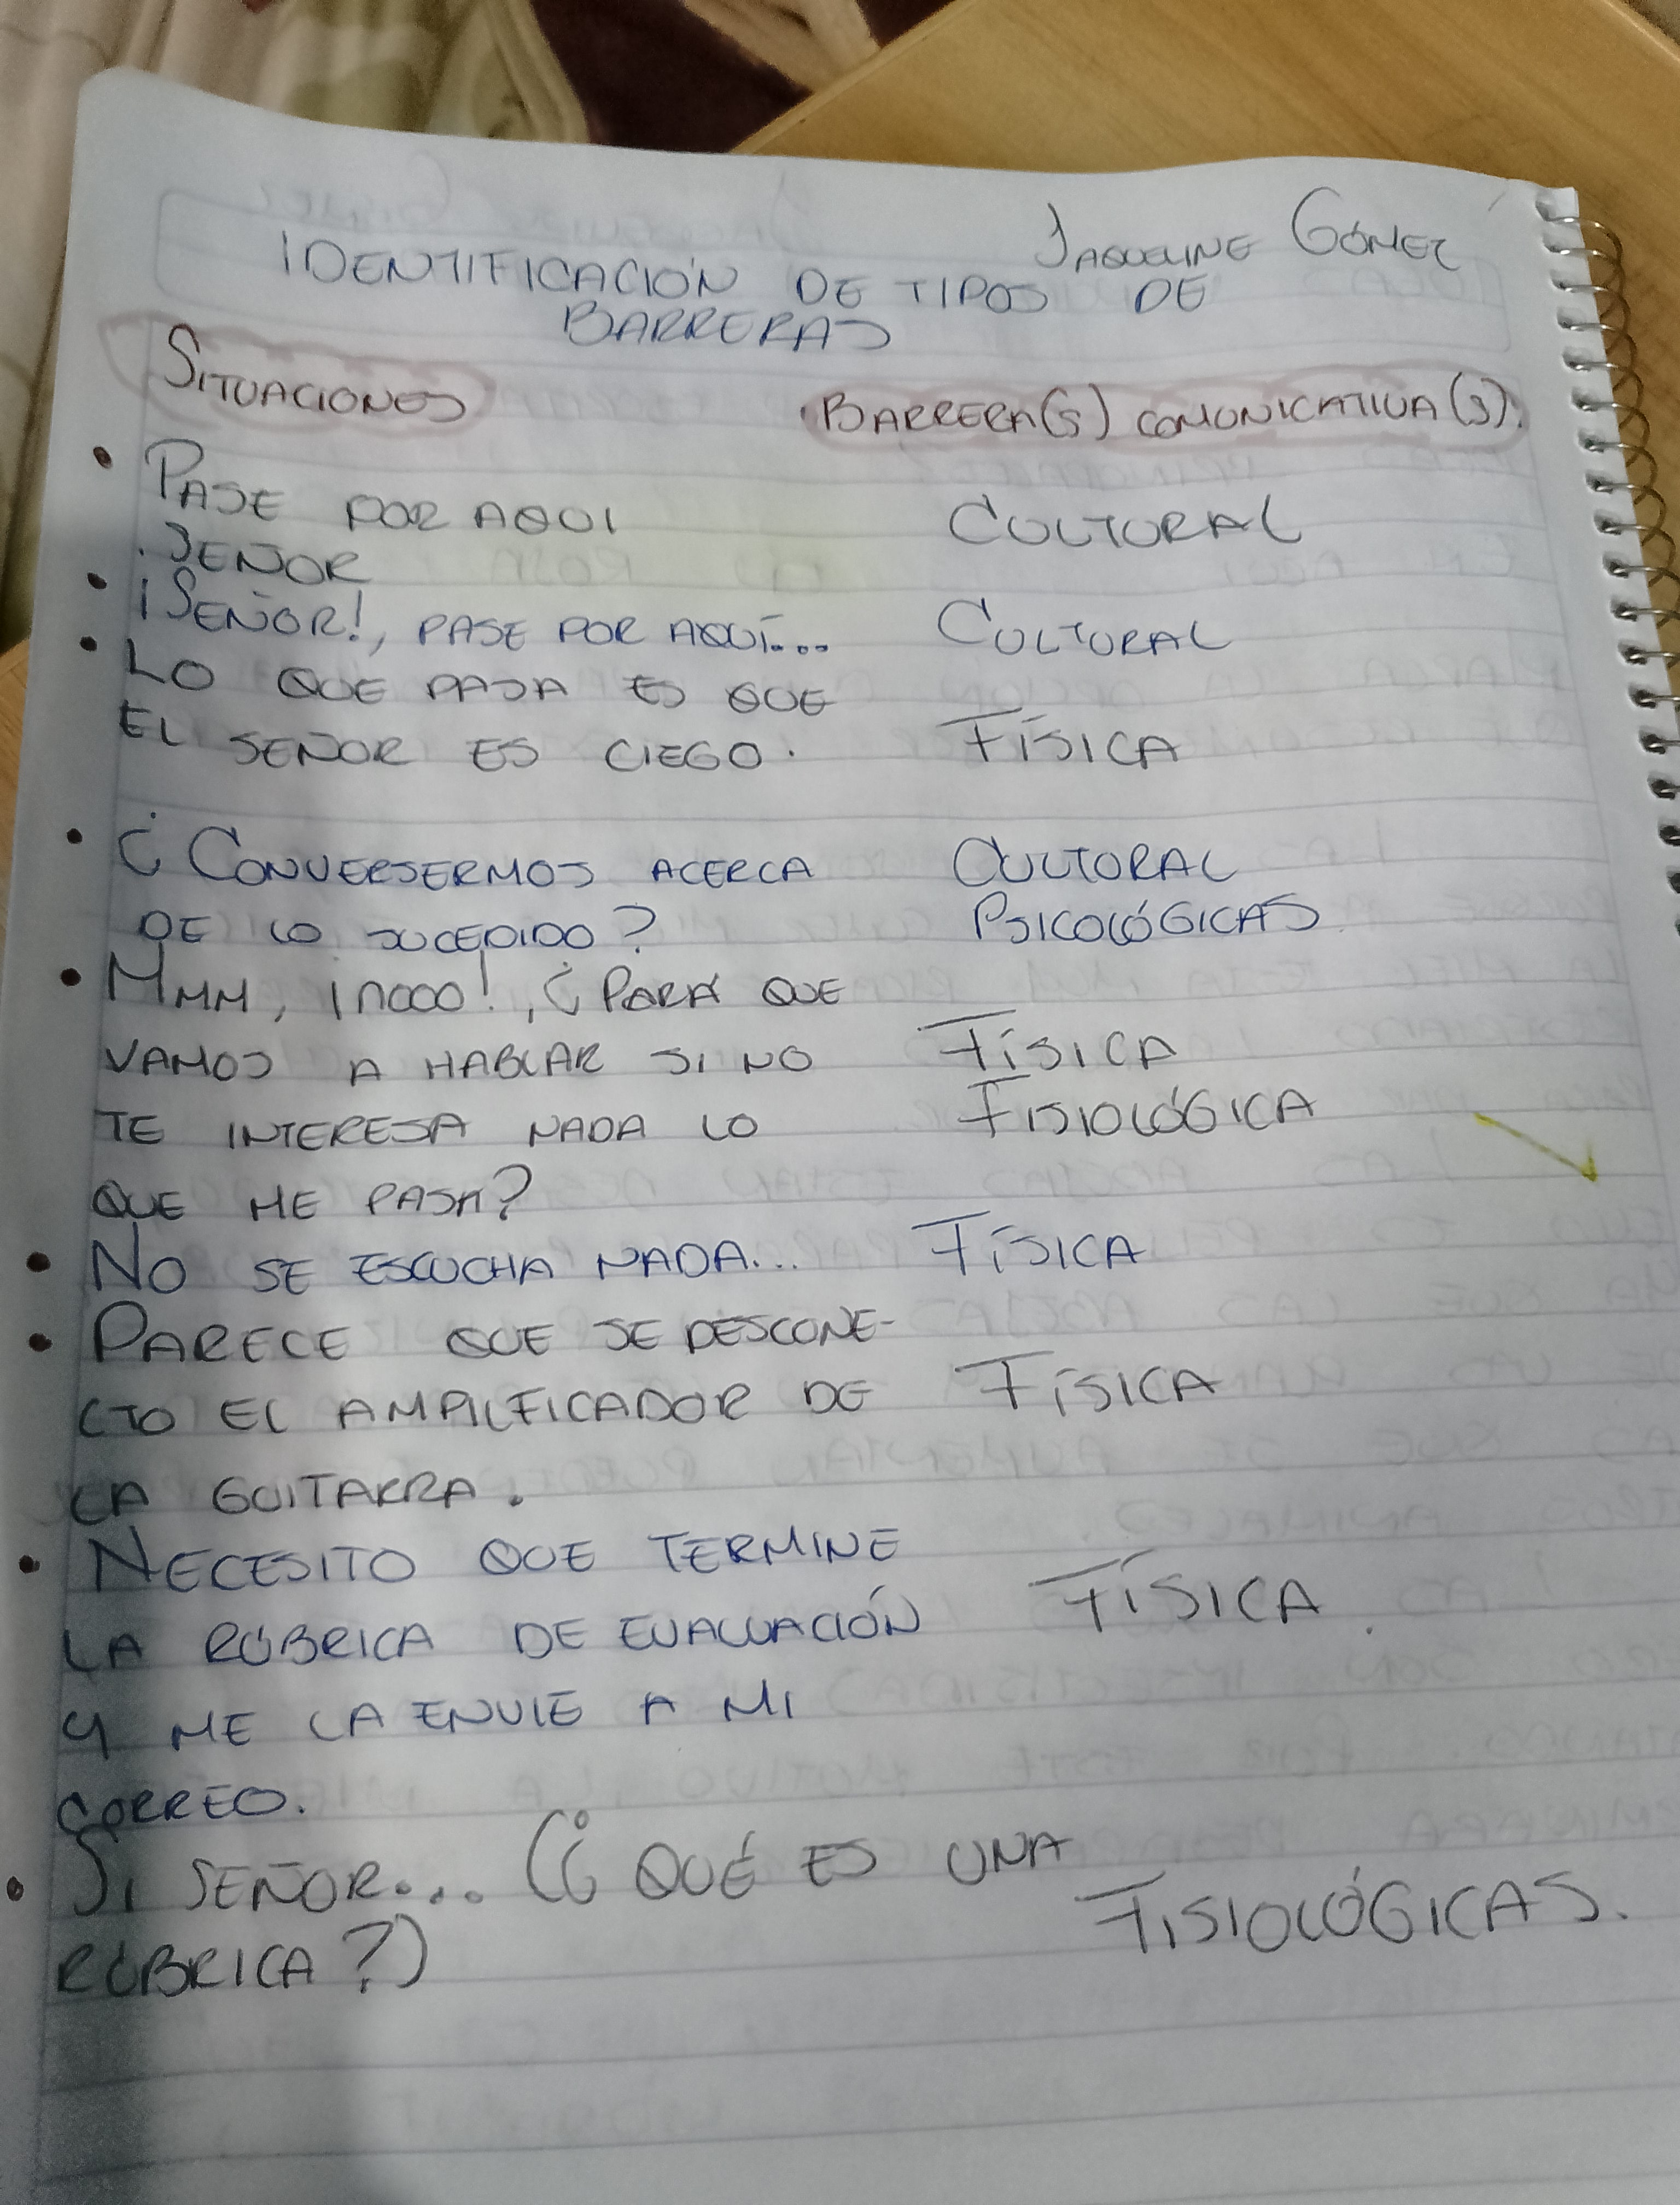 Jaqueline Gómez
IDENTIFICACIÓN DE TIPOS DE
BARRERAS
SITUACIONES BARRERA(S) COMUNICATIVA(S).
• PASE POR AQUI CULTURAL
.SEÑOR
• ¡SEÑOR!, PASE POR AQUÍ... CULTURAL
• LO QUE PASA ES QUE
EL SEÑOR ES CIEGO. FÍSICA
• ¿CONVERSERMOS ACERCA CULTURAL
DE LO SUCEDIDO? PSICOLÓGICAS
• MMM, ¡NOOO!, ¿PARA QUE
VAMOS A HABLAR SI NO FÍSICA
TE INTERESA NADA LO FISIOLÓGICA
QUE ME PASA?
• NO SE ESCUCHA NADA... FÍSICA
• PARECE QUE SE DESCONE-
CTO EL AMPILFICADOR DE FÍSICA
LA GUITARRA.
• NECESITO QUE TERMINE
LA RÚBRICA DE EVALUACIÓN FÍSICA.
Y ME LA ENVIE A MI
CORREO.
• SI SEÑOR... (¿QUÉ ES UNA
RÚBRICA?) FISIOLÓGICAS.